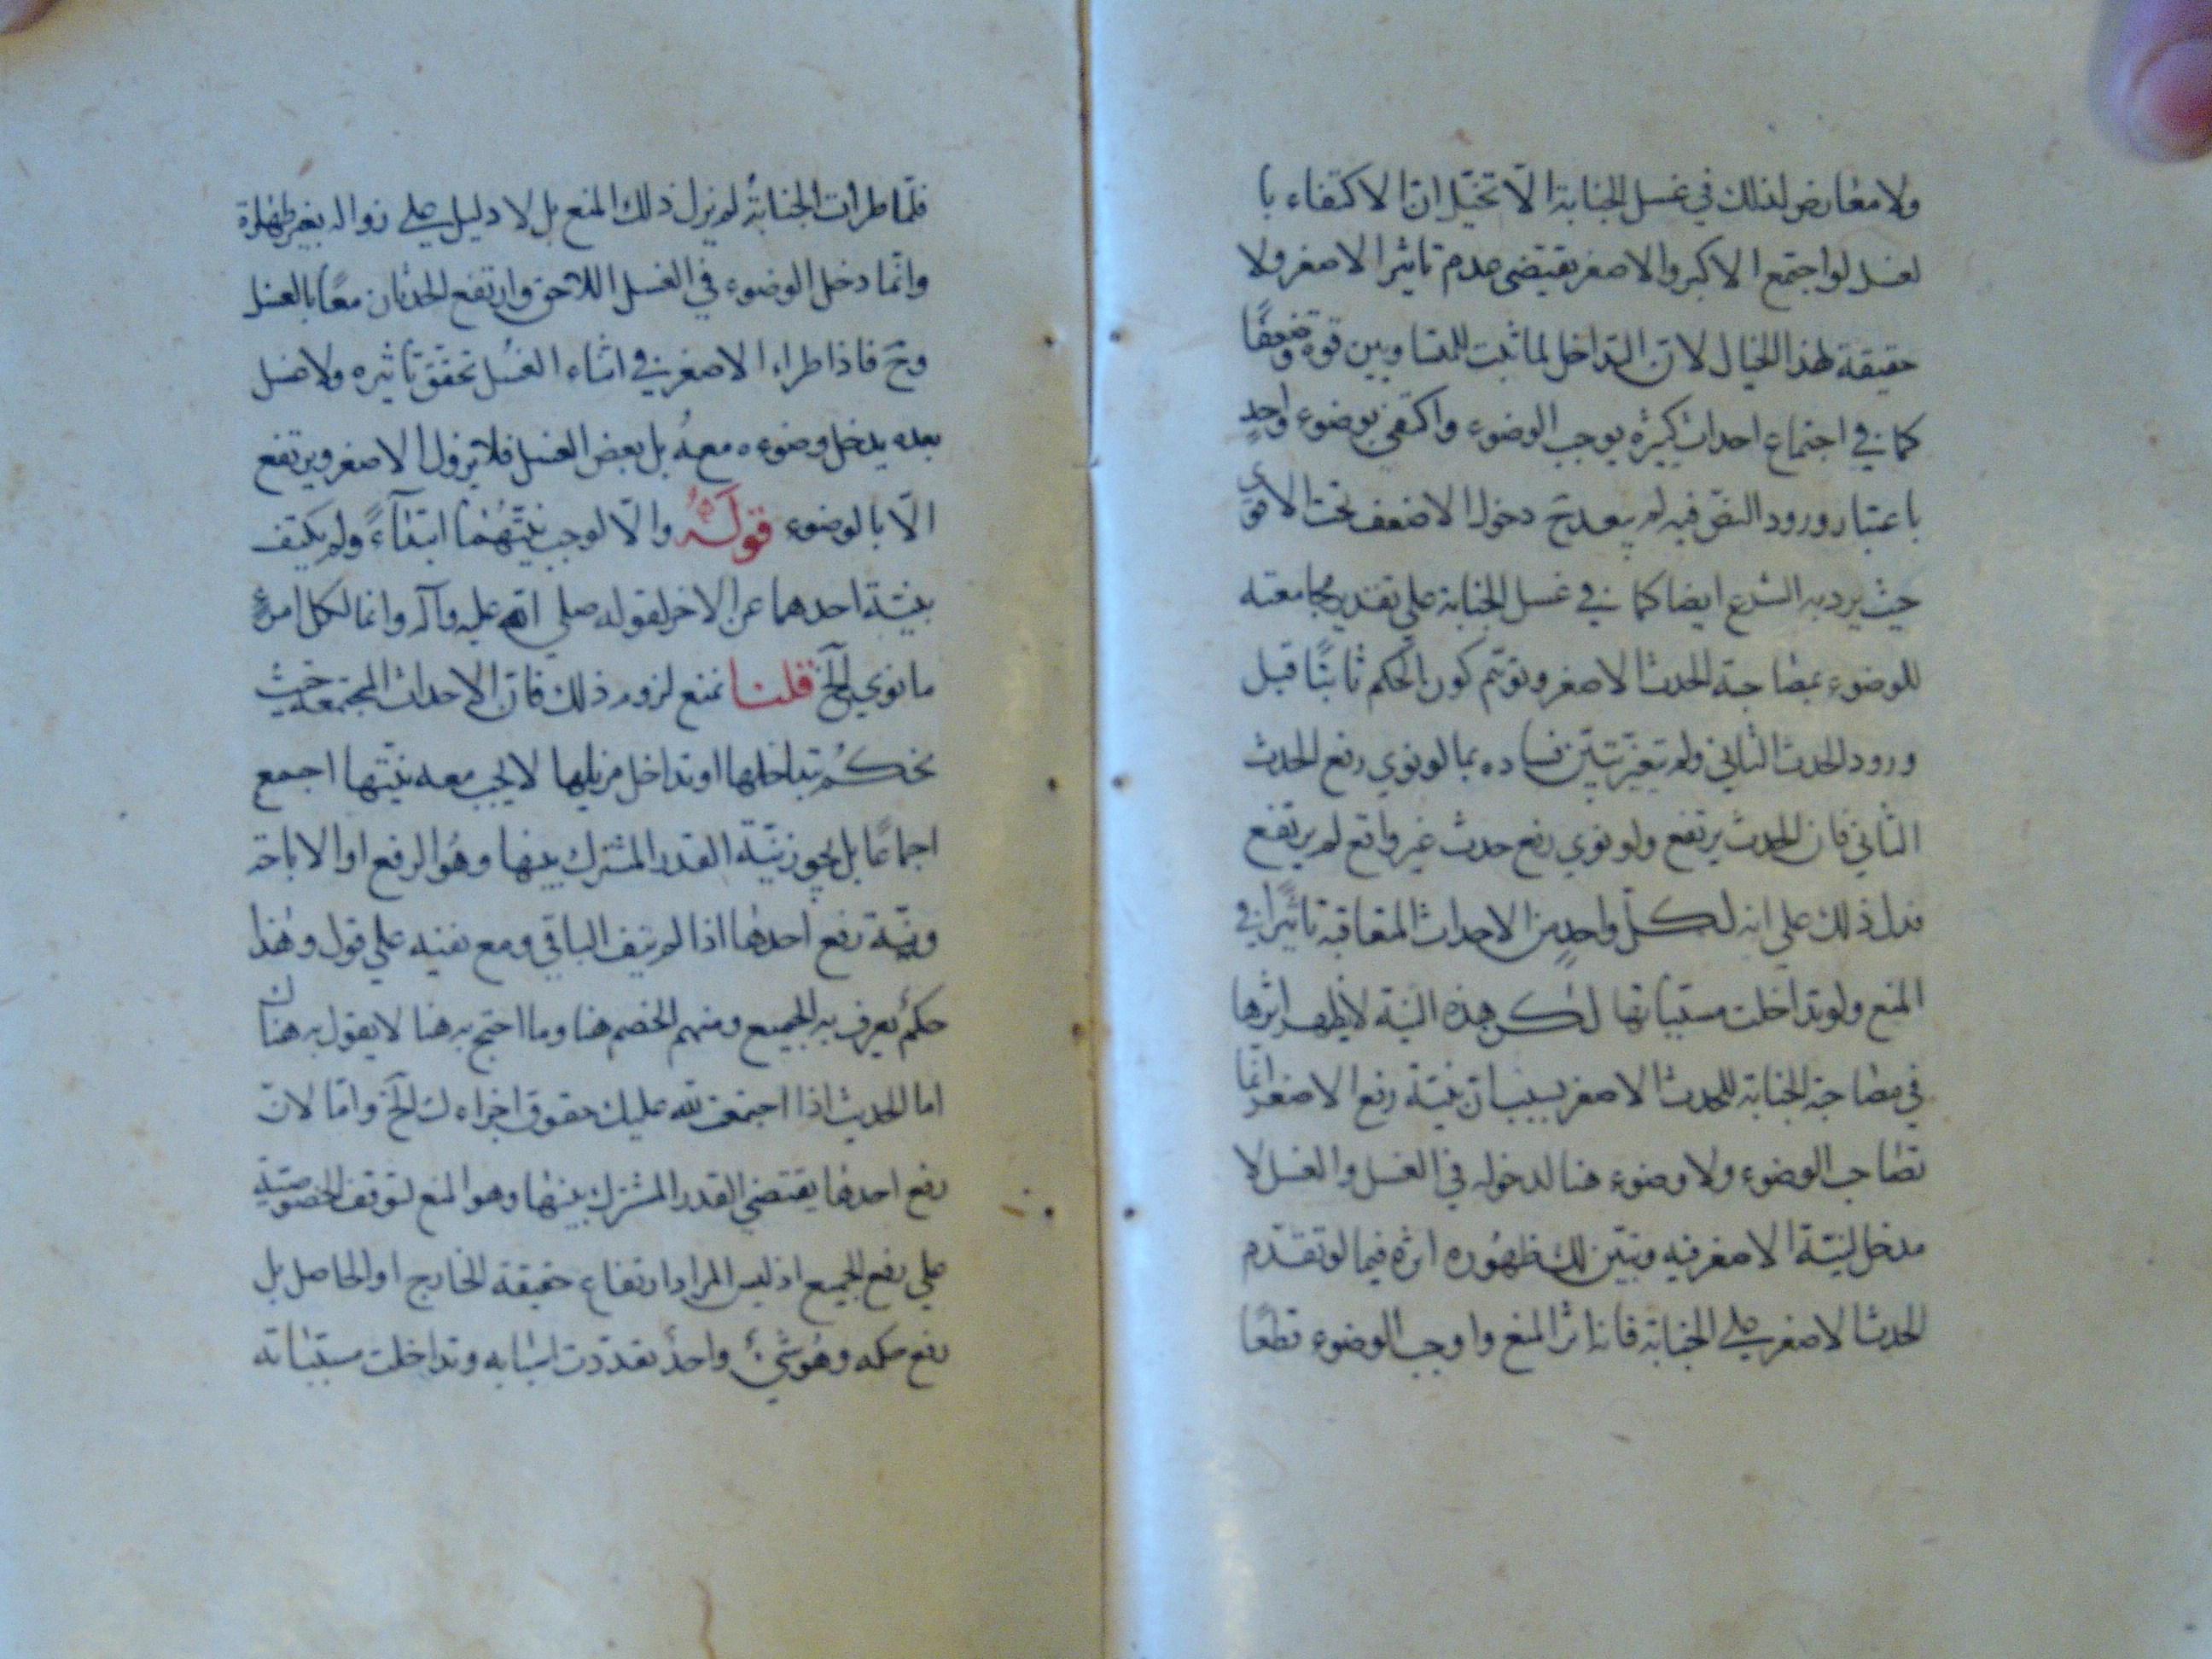 ولا معارض لذلك في غسل الجنابة الّا تخيّل انّ الاكتفاء با
لغسل لو اجتمع الاكبر والاصغر يقتضى عدم تاثير الاصغر ولا
حقيقة لهذا الخيال لانّ التداخل لما ثبت للمتساويين قوة وضعفًا
كما في اجتماع احداث كثيرة يوجب الوضوء واكتفي بوضوء واحدٍ
باعتبار ورود النصّ فيه لم يبعد حَ دخول الاضعف تحت الاقوى
حيث يرد به الشرع ايضا كما في غسل الجنابة علي تقدير مجامعته
للوضوء بمصاحبة الحدث الاصغر وتوهّم كون الحكم ثابتًا قبل
ورود الحدث الثاني ولم يتغيّر تبيّن فساده بما لو نوي رفع الحدث
الثاني فان الحدث يرتفع ولو نوي رفع حدث غير واقع لم يرتفع
فدل ذلك علي انه لكلّ واحدٍ من الاحداث المتعاقبة تاثيرًا في
المنع ولو تداخلت مسبّباتها لكن هذه النيّة لا يظهر اثرها
في مصاحبة الجنابة للحدث الاصغر بسبب ان نيّة رفع الاصغر انّما
تصاحب الوضوء ولا وضوء هنا لدخوله في الغسل والغسل لا
مدخل لنيّة الاصغر فيه وتبيّن لك ظهُوره اثره فيما لو تقدّم
الحدث الاصغر علي الجنابة فانه اثر المنع واوجب الوضوء قطعًا
فلمّا طرات الجنابةُ لم يزل ذلك المنع بل لا دليل علي زواله بغير طهارة
وانّما دخل الوضوء في الغسل اللاحق وارتفع الحدثان معًا بالغسل
وحَ فاذا طراء الاصغر في اثناء الغُسل تحقّق تأثيره ولا غسل
بعده يدخل وضوءه معهُ بل بعض الغسل فلا يزول الاصغر ويرتفع
الّا بالوضوء قولَهُ والّا لوجب نيّتهُما ابتداءً ولم يكتف
بنيّة احدهما عن الاخر لقوله صلي الله عليه وآله وانما لكل امرئٍ
ما نوي الخ قلنا نمنع لزوم ذلك فانّ الاحداث المجتمعة حيث
نحكُم بتداخلها او تداخل مزيلها لا يجب معه نيّتها اجمع
اجماعًا بل يجوز نيّة القدر المشترك بينها وهُو الرفع او الاباحة
ونيّة رفع احدها اذا لم ينف الباقي ومع نفيه علي قول وهٰذا
حكمٌ يعرف به الجميع ومنهم الخصم هنا وما احتج به هنا لا يقول به هناك
اما الحديث اذا اجتمعت لله عليك حقوق اجزاءك الخ وامّا لانّ
رفع احدها يقتضي القدر المشترك بينها وهو المنع لتوقف الخصوصيّة
علي رفع الجميع اذ ليس المراد ارتفاع حقيقة الخارج او الحاصل بل
رفع حكمه وهُو شيءٌ واحدٌ تعدّدت اسبابه وتداخلت مسبّباته